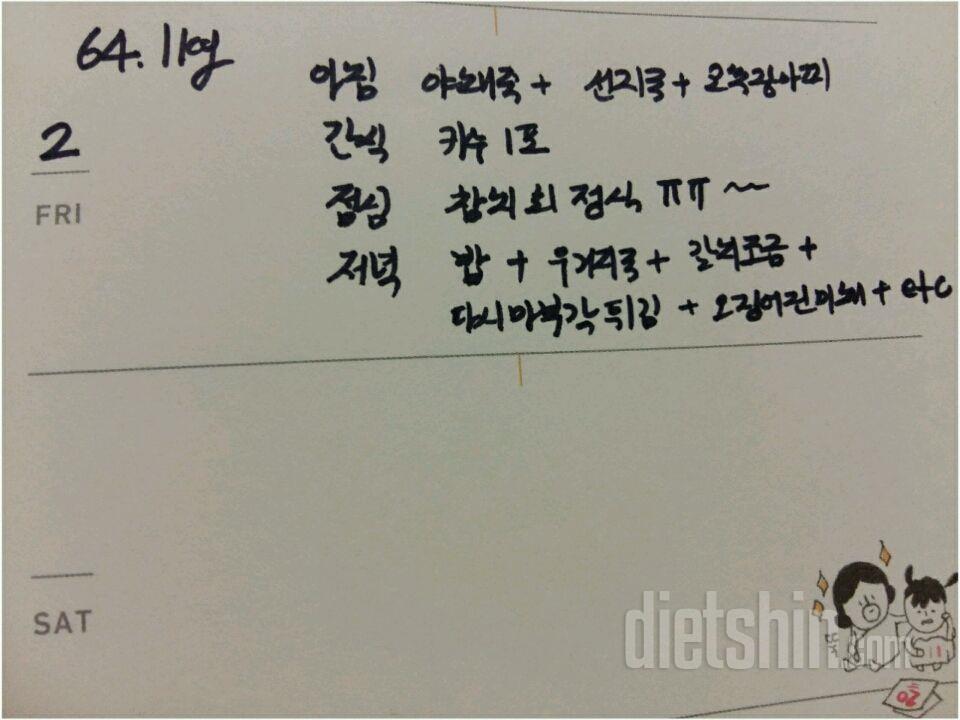 64.11
2
FRI
아침 야채죽 + 선지국 +
간식 1포
점심 참치 회 정식 ㅠㅠ ~
저녁 밥 + 우거지국 + 갈치조금 +
다시마부각튀김 + 오징어진미채 + etc
SAT
dietshin.com